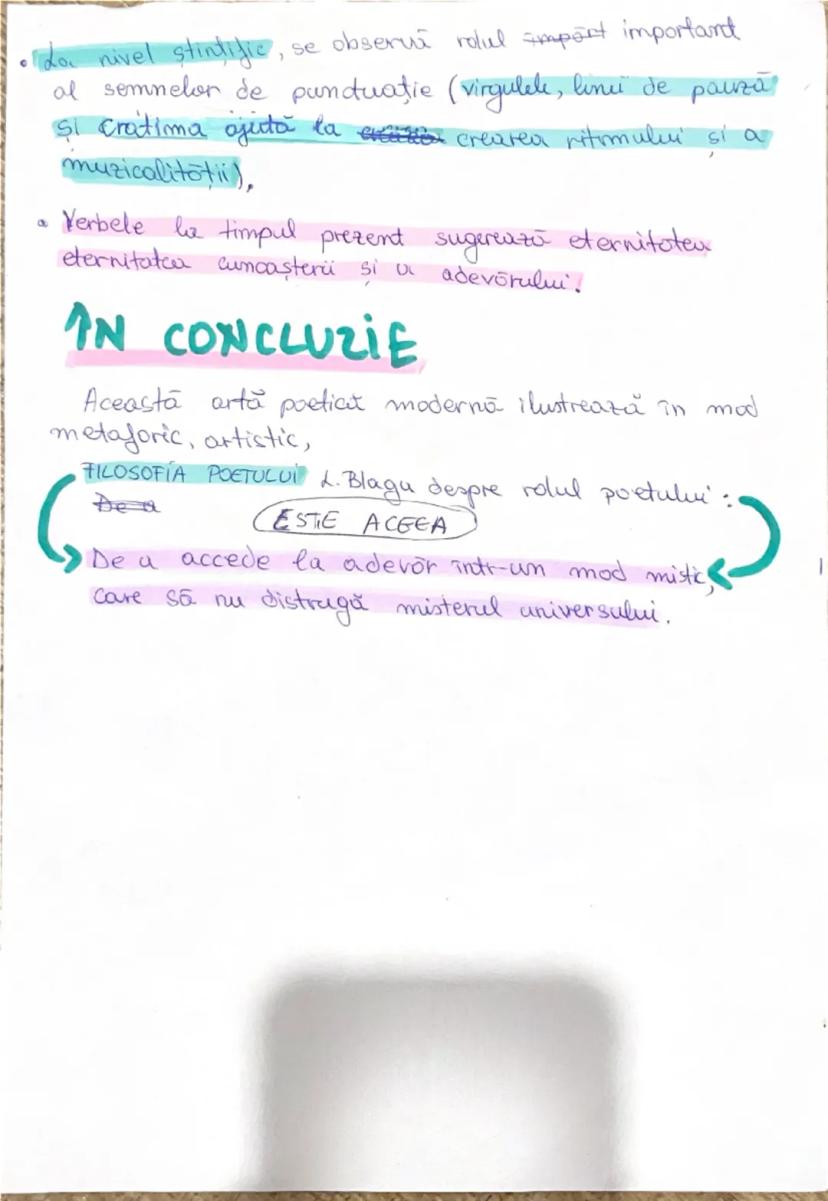 • La nivel științific, se observă rolul import important
al semnelor de punctuație (virgulele, linii de pauză
și cratima ajută la crearea ritmului și a
muzicalității),
• Verbele la timpul prezent sugerează eternitatea
eternitatea cunoașterii și a adevărului.
ÎN CONCLUZIE
Această artă poetică modernă ilustrează în mod
metaforic, artistic,
FILOSOFIA POETULUI L. Blaga despre rolul poetului:
De a
ESTE ACEEA
De a accede la adevăr într-un mod mistic,
care să nu distrugă misterul universului.